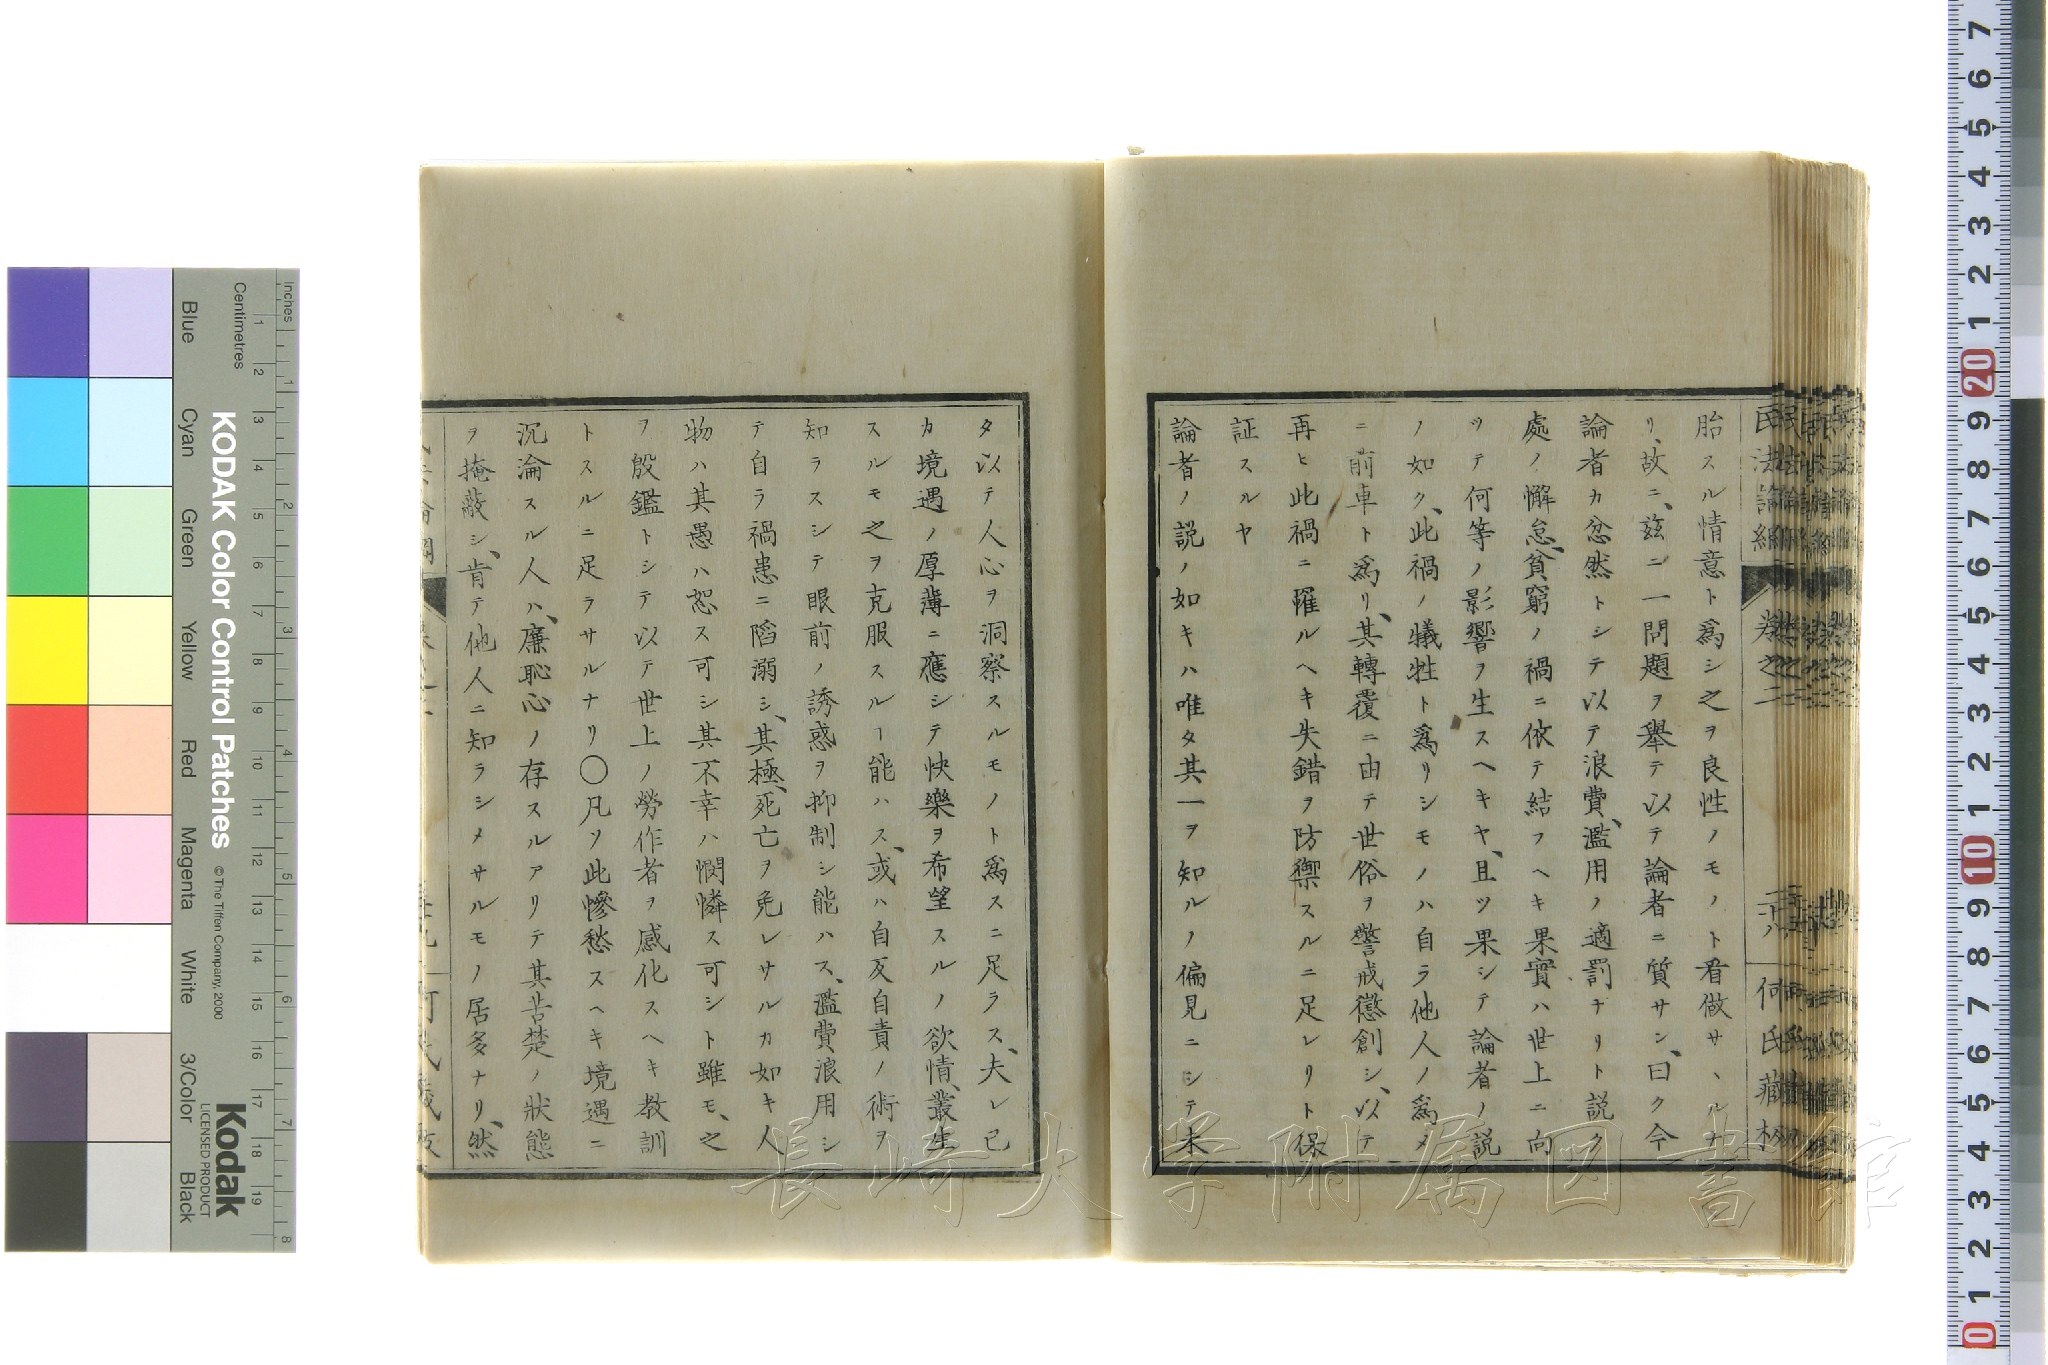 胎スル情意ト爲シ之ヲ良性ノモノト看做サヽルナ
リ、故ニ、茲ニ一問題ヲ舉テ以テ論者ニ質サン、曰ク今
論者カ忿然トシテ以テ浪費、濫用ノ適罰ナリト説ク
處ノ懈怠、貧窮ノ禍ニ依テ結フヘキ果實ハ世上ニ向
ツテ何等ノ影響ヲ生スヘキヤ、且ツ果シテ論者ノ説
ノ如ク、此禍ノ犠牲ト爲リシモノハ自ラ他人ノ爲メ
ニ前車ト爲リ、其轉覆ニ由テ世俗ヲ警戒懲創シ、以テ
再ヒ此禍ニ罹ルヘキ失錯ヲ防禦スルニ足レリト保
証スルヤ
論者ノ説ノ如キハ唯タ其一ヲ知ルノ偏見ニシテ未
タ以テ人心ヲ洞察スルモノト爲スニ足ラス、夫レ已
カ境遇ノ厚薄ニ應シテ快樂ヲ希望スルノ欲情、叢生
スルモ之ヲ克服スルヿ能ハス、或ハ自反自責ノ術ヲ
知ラスシテ眼前ノ誘惑ヲ抑制シ能ハス、濫費浪用シ
テ自ラ禍患ニ陷溺シ、其極、死亡ヲ免レサルカ如キ人
物ハ其愚ハ恕ス可シ其不幸ハ憫憐ス可シト雖モ、之
ヲ殷鑑トシテ以テ世上ノ勞作者ヲ感化スヘキ教訓
トスルニ足ラサルナリ〇凡ソ此慘愁スヘキ境遇ニ
沉淪スル人ハ、廉恥心ノ存スルアリテ其苦楚ノ狀態
ヲ掩蔽シ、肯テ他人ニ知ラシメサルモノ居多ナリ、然
民法論綱 卷之二 二十八 何氏藏板
長崎大学附属図書館
KODAK Color Control Patches
© The Tiffen Company, 2000
Kodak
LICENSED PRODUCT
Inches
Centimetres
Blue
Cyan
Green
Yellow
Red
Magenta
White
3/Color
Black